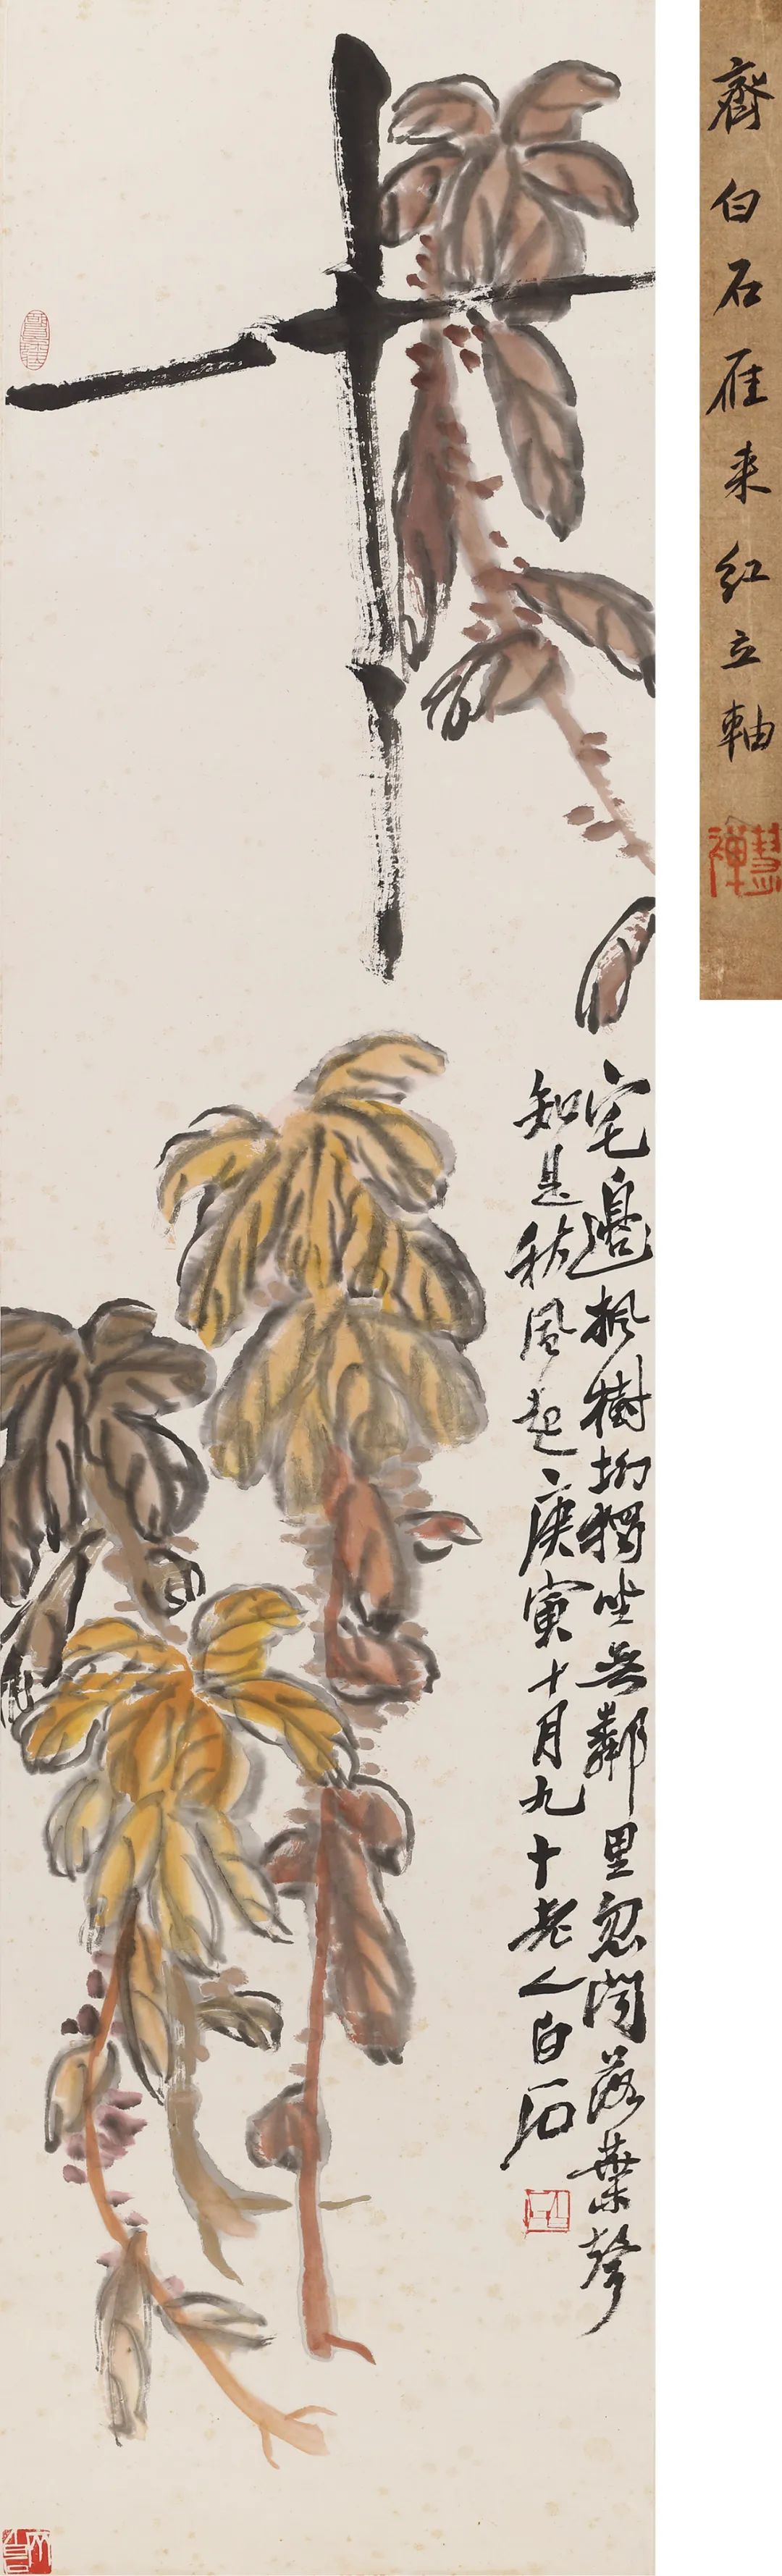 齊白石雁来紅立軸
慧禪
宅邊楓樹坳獨坐無鄰里忽聞落葉聲
知是秋風起庚寅十月九十老人白石